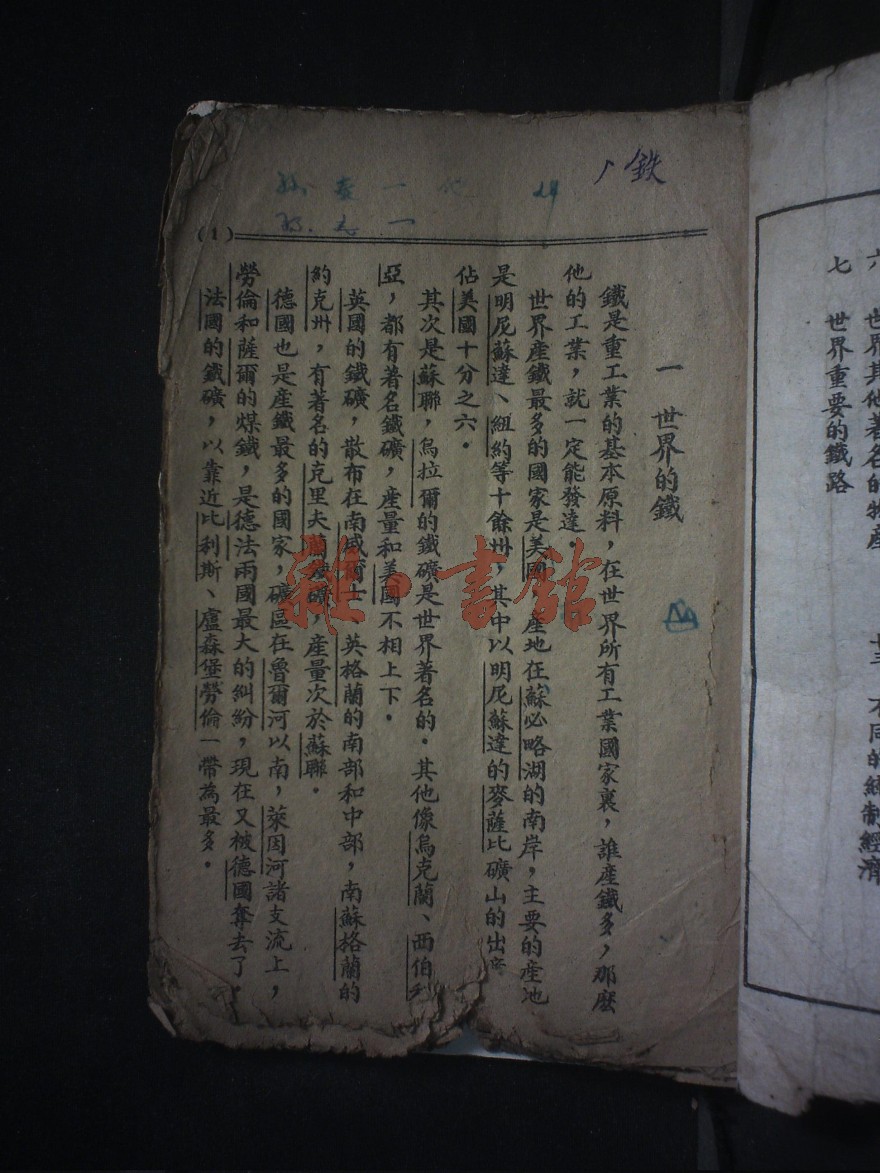 六　世界其他著名的物產
七　世界重要的鐵路
不同的統制經濟
鉄
24
(1)
一　世界的鐵
鐵是重工業的基本原料，在世界所有工業國家裏，誰產鐵多，那麼
他的工業，就一定能發達．
世界產鐵最多的國家是美國，產地在蘇必略湖的南岸，主要的產地
是明尼蘇達、紐約等十餘州，其中以明尼蘇達的麥薩比礦山的出產
佔美國十分之六．
其次是蘇聯，烏拉爾的鐵礦是世界著名的．其他像烏克蘭、西伯利
亞，都有著名鐵礦，產量和美國不相上下．
英國的鐵礦，散布在南威爾士、英格蘭的南部和中部，南蘇格蘭的
約克州，有著名的克里夫蘭鐵礦，產量次於蘇聯．
德國也是產鐵最多的國家，礦區在魯爾河以南，萊因河諸支流上，
勞倫和薩爾的煤鐵，是德法兩國最大的糾紛，現在又被德國奪去了．
法國的鐵礦，以靠近比利斯、盧森堡勞倫一帶為最多．
雜·書館